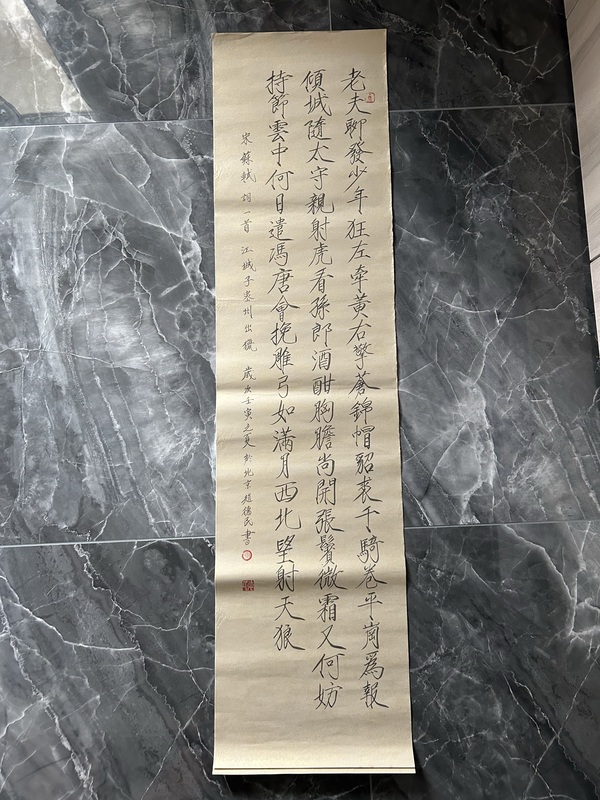 老夫聊發少年狂左牽黃右擎蒼錦帽貂裘千騎卷平崗為報
傾城隨太守親射虎看孫郎酒酣胸膽尚開張鬢微霜又何妨
持節雲中何日遣馮唐會挽雕弓如滿月西北望射天狼
宋蘇軾詞一首 江城子密州出獵 歲次壬寅之夏於北京趙德民書